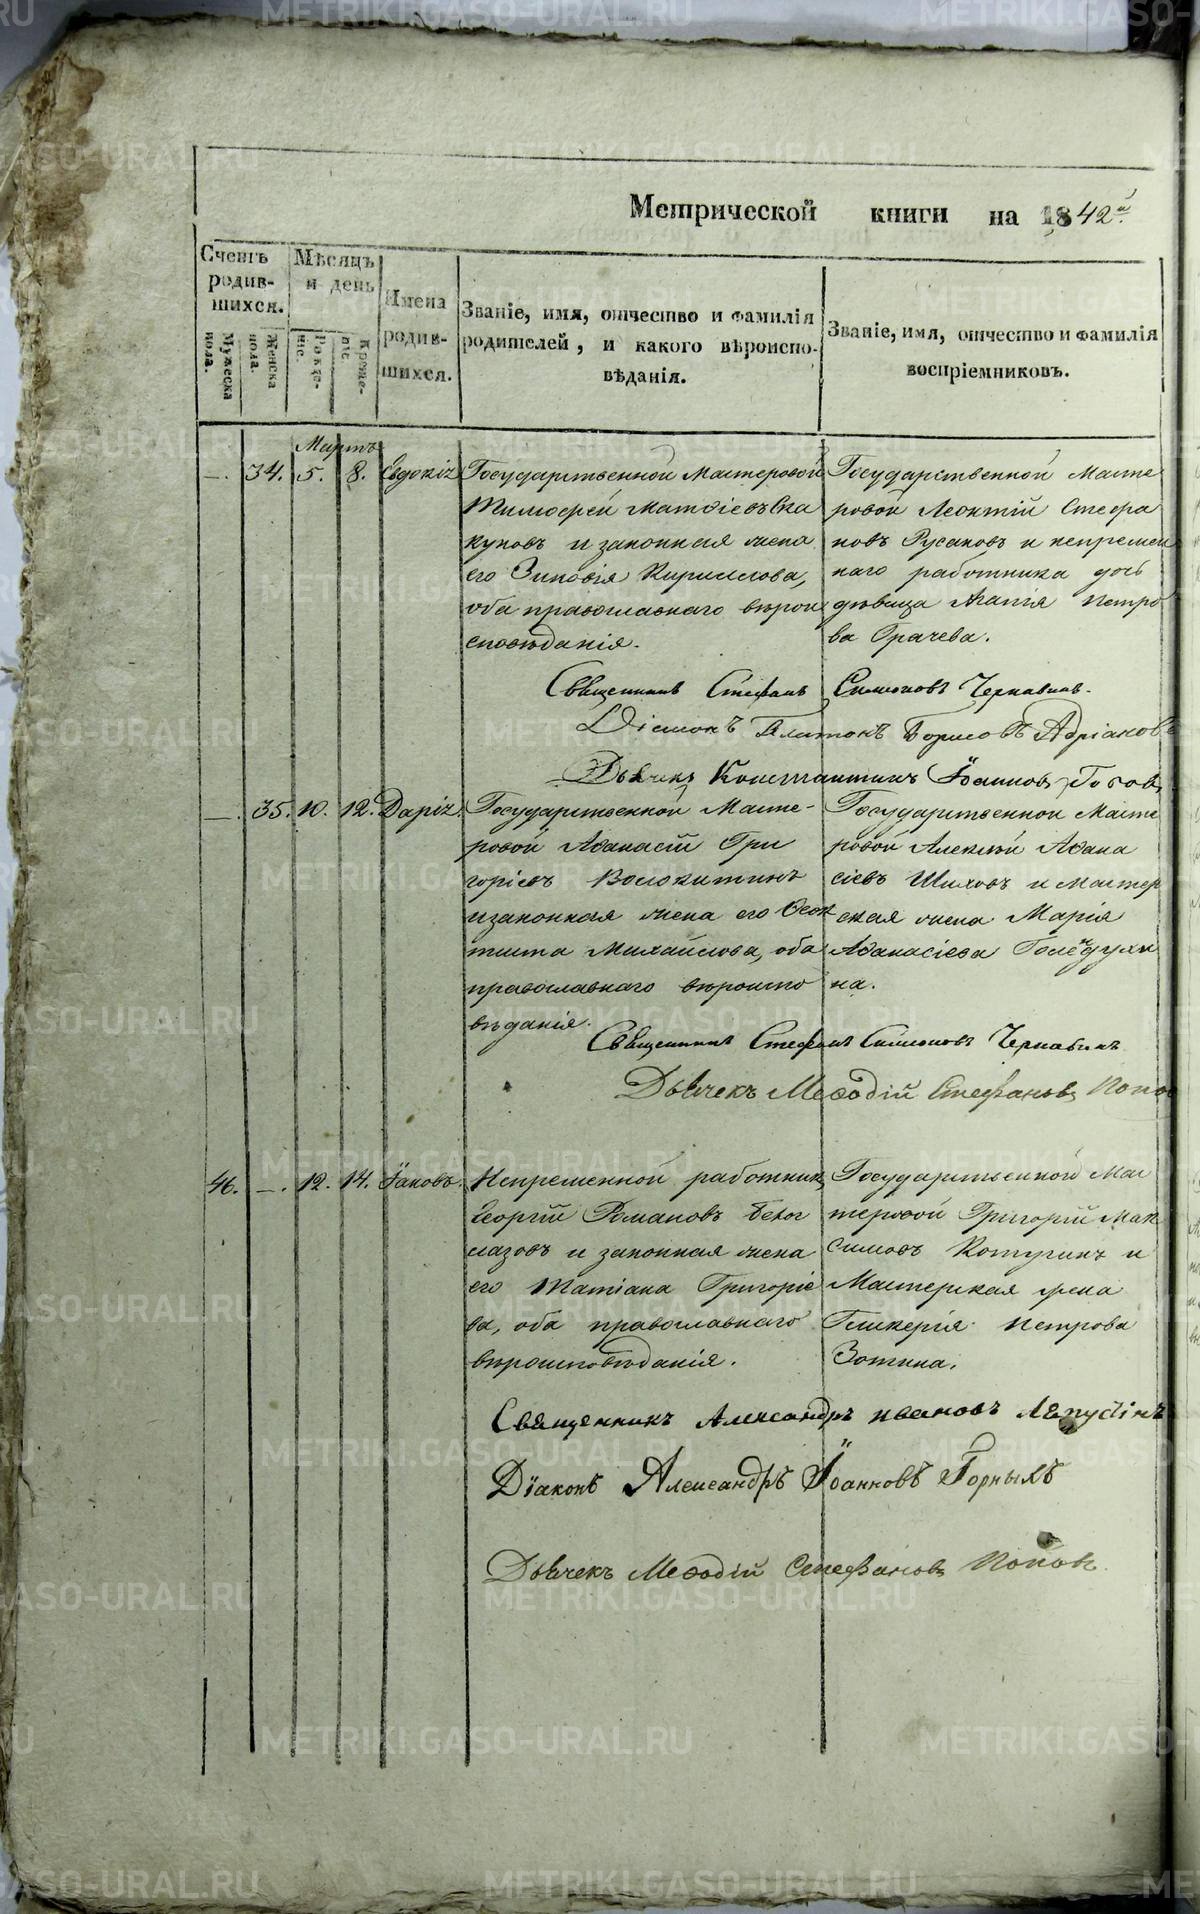 Метрической книги на 1842й.
Счетъ родив-шихся.
Мужеска пола.
Женска пола.
Мѣсяцъ и день
Рожде-ніе.
Креще-ніе.
Имена родив-шихся.
Званіе, имя, отчество и фамилія
родителей, и какого вѣроиспо-
вѣданія.
Званіе, имя, отчество и фамилія
воспріемниковъ.
Мартъ
—. 34. 5. 8. Евдокія
Государственной мастеровой
Тимофей Матѳіевъ Ска
куновъ и законная жена
его Зиновія Кириллова,
оба православнаго вѣрои
сповѣданія.
Государственной Масте
ровой Леонтій Стефа
новъ Русаковъ и непремен
наго работника дочь
дѣвица Агапія Петро
ва Грачева.
Священникъ Стефанъ Симеоновъ Чернавинъ.
Діаконъ Платонъ Борисовъ Адріановъ
Дьячекъ Константинъ Іоанновъ
—. 35. 10. 12. Дарія.
Государственной Масте-
ровой Аѳанасій Гри
горіевъ Волокитинъ
и законная жена его Ѳеок
тиста Михайлова, оба
православнаго вѣроиспо
вѣданія.
Государственной Масте
ровой Алексѣй Аѳана
сіевъ Шиховъ и мастер
ская жена Марія
Аѳанасіева Голендухи
на.
Священникъ Стефанъ Симеоновъ Чернавинъ
Дьячекъ Меѳодій Стефановъ Попов
46. —. 12. 14. Іаковъ.
Непременной работникъ
Георгій Романовъ Белог
лазовъ и законная жена
его Татіана Григоріе
ва, оба православнаго
вѣроисповѣданія.
Государственной Мас
теровой Григорій Мак
симовъ Котугинъ и
Мастерская жена
Гликерія Петрова
Зотина.
Священникъ Александръ Ивановъ Лапустинъ
Діаконъ Александръ Іоанновъ Горныхъ
Дьячекъ Меѳодій Стефановъ Поповъ.
METRIKI.GASO-URAL.RU